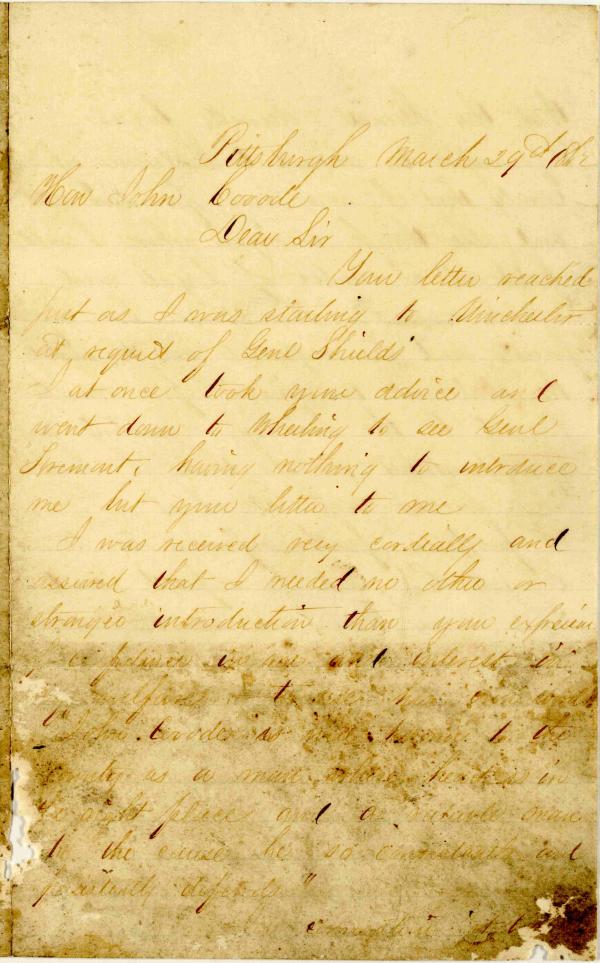 Pittsburgh March 29th 1862
Hon John Covode
Dear Sir
Your letter reached
just as I was starting to Winchester
at request of Genl Shields
I at once took your advice and
went down to Wheeling to see Genl
Fremont, having nothing to introduce
me but your letter to me
I was received very cordially and
assured that I needed no other or
stronger introduction than your
confidence in me and interest in
welfare to use his own words
"John Covode is well known to the
country as a man whose heart is in
the right place and a valuable man
to the cause he so constantly and
defends"